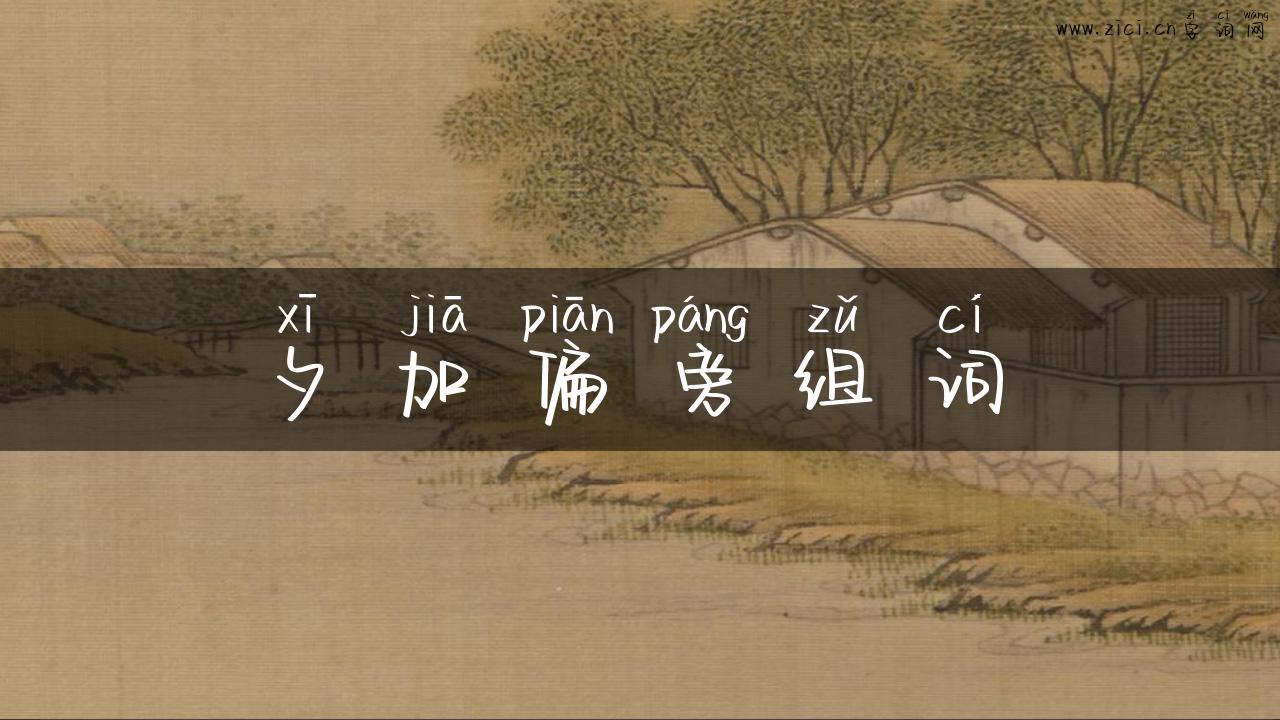 zì cí wǎng
www.zici.cn 字词网
xī jiā piān páng zǔ cí
夕加偏旁组词